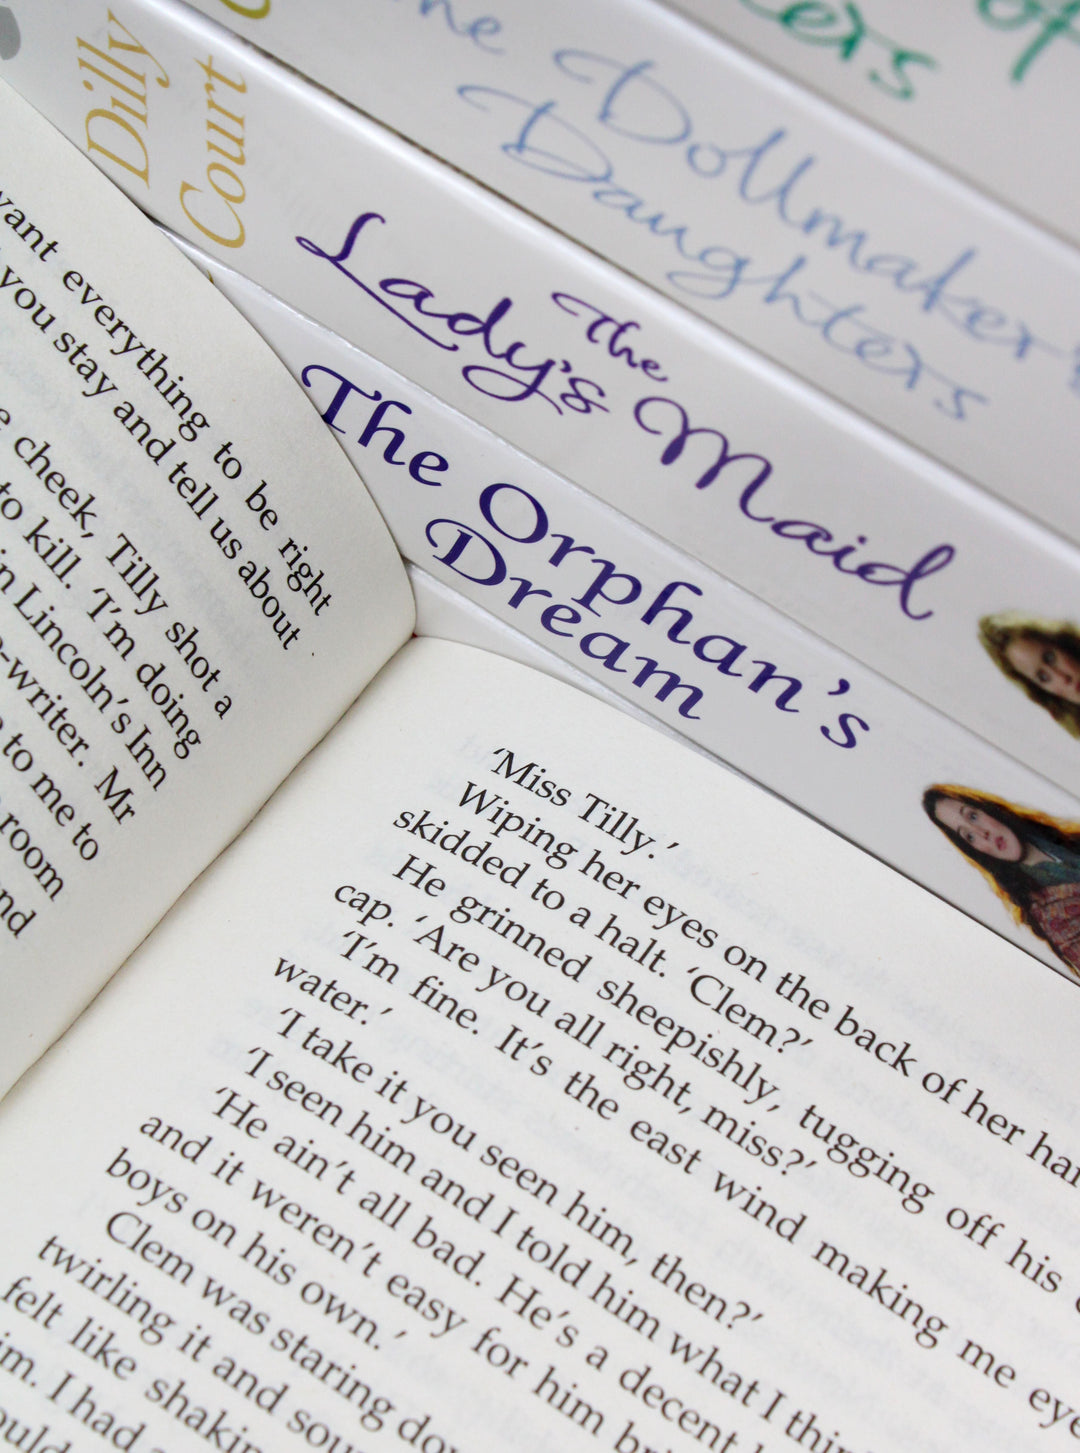 of
Dollmaker's
Daughters
Dilly
Court
The
Lady's Maid
The Orphan's
Dream
want everything to be right
you stay and tell us about
cheek, Tilly shot a
to kill. 'I'm doing
in Lincoln's Inn
-writer. Mr
to me to
room
'Miss Tilly.'
Wiping her eyes on the back of her
skidded to a halt. 'Clem?'
He grinned sheepishly, tugging off his
cap. 'Are you all right, miss?'
'I'm fine. It's the east wind making me
water.'
'I take it you seen him, then?'
'I seen him and I told him what I
'He ain't all bad. He's a decent
and it weren't easy for him
boys on his own.'
Clem was staring
twirling it and
felt like
I had